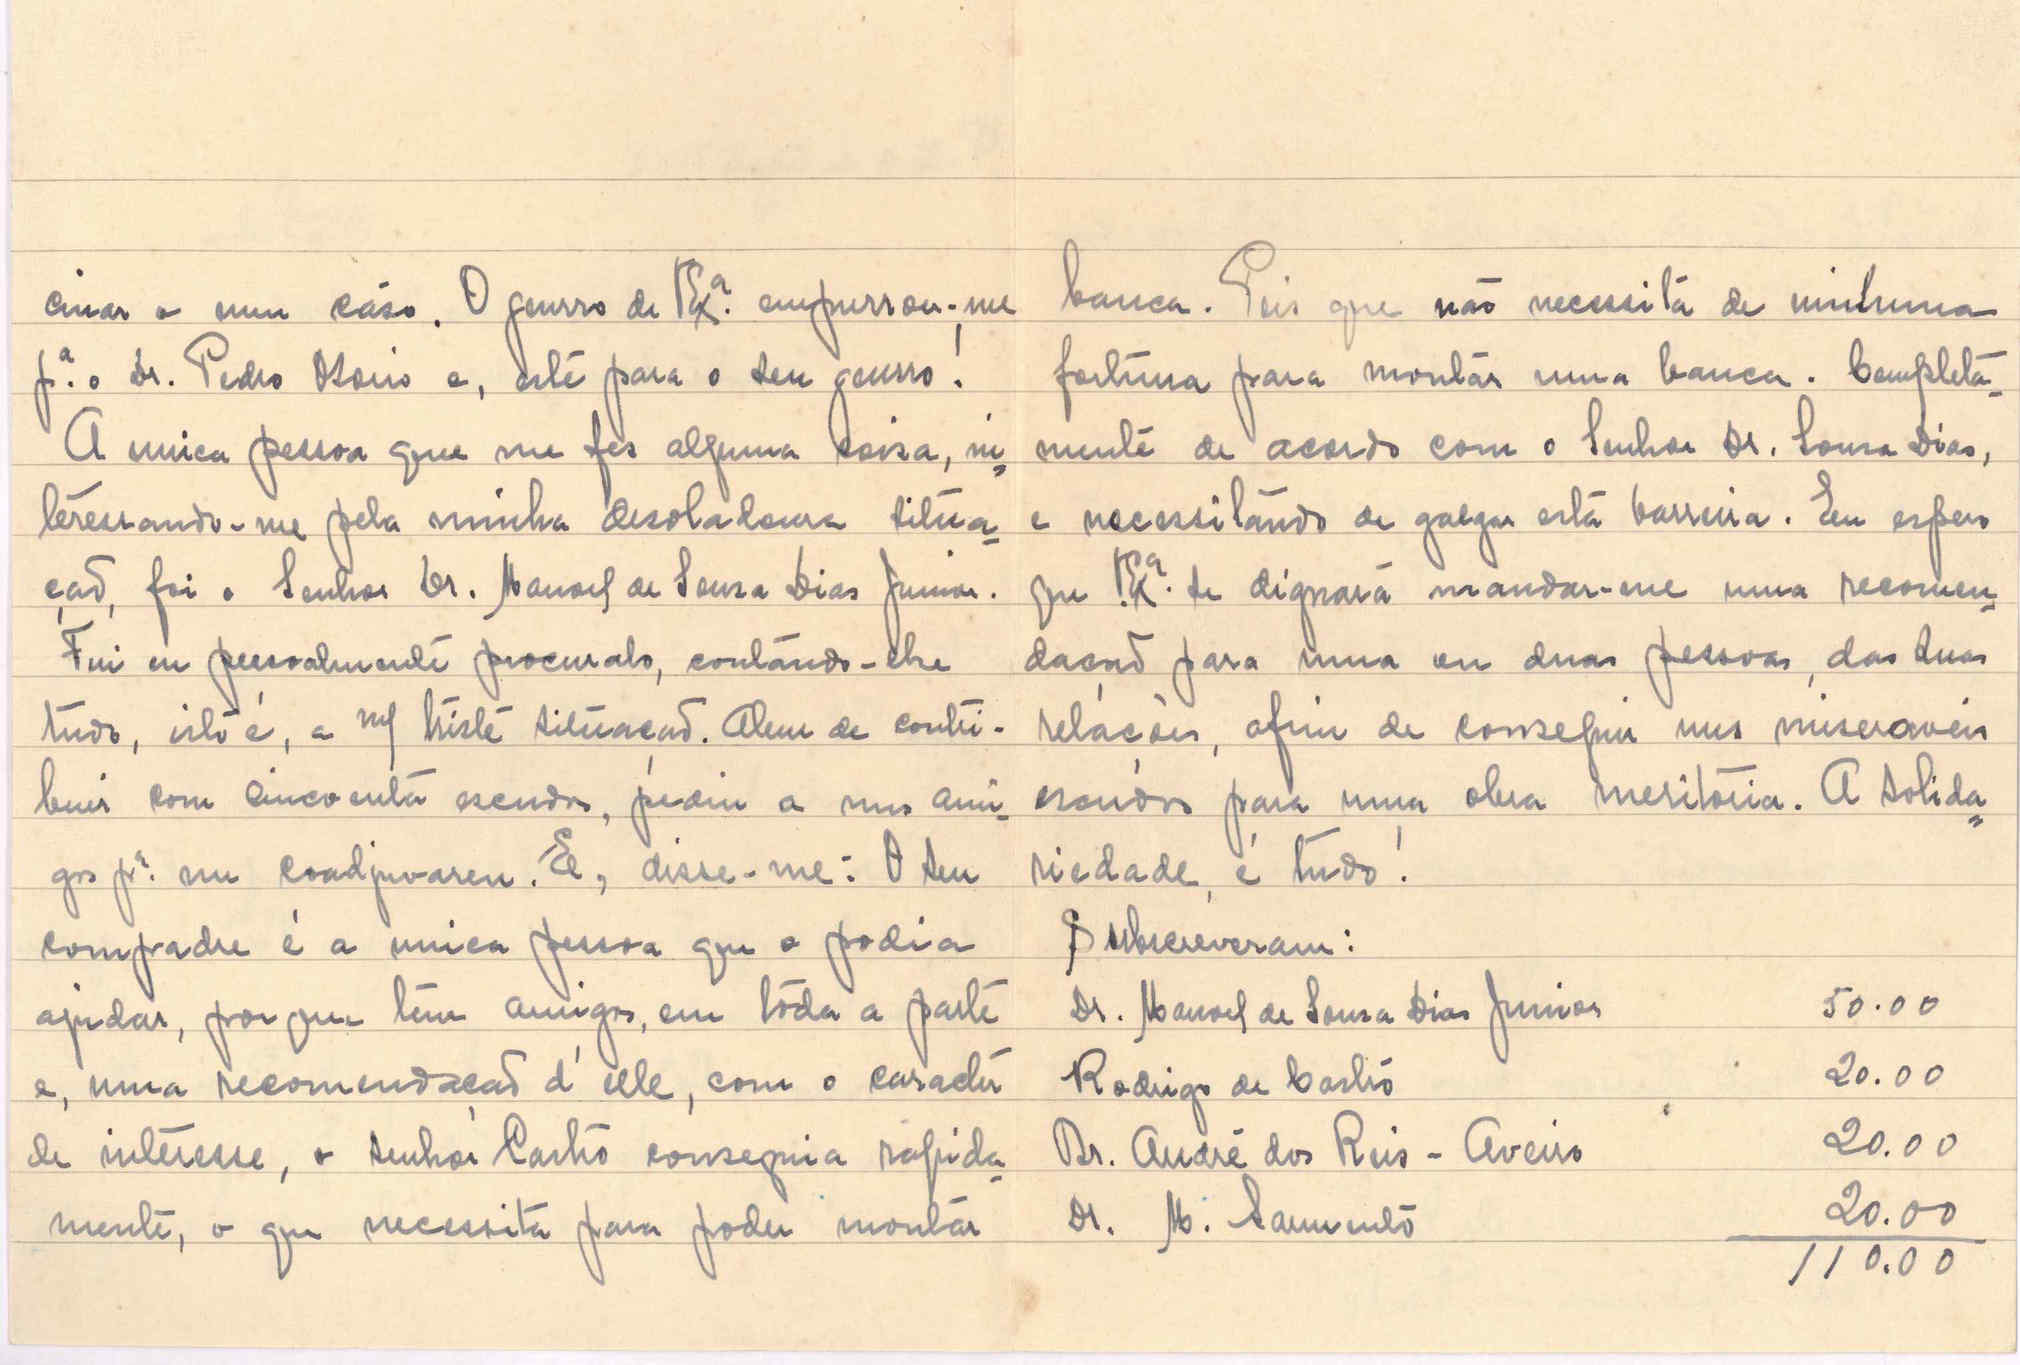 cinar o meu cáso. O genrro de V.Exª. empurrou-me
pª. o Dr. Pedro Osorio e, esté para o seu genrro!
A unica pessoa que me fes alguma coisa, in-
teressando-me pela minha desoladoura situa-
ção, foi o Senhor Dr. Manoel de Sousa Dias Junior.
Fui eu pessoalmente procuralo, contando-lhe
tudo, isto é, a mª triste situação. Alem de contri-
buir com cincoenta escudos, pediu a uns ami-
gos pª. me coadjuvarem. E, disse-me: O seu
compadre é a unica pessoa que o podia
ajudar, porque têm amigos, em tôda a parte
e, uma recomendação d'elle, com o caracter
de interesse, o senhor Castro conseguia rapida-
mente, o que necessita para poder montar
banca. Pois que não necessita de ninhuma
fortuna para montar uma banca. Completa-
mente de acordo com o Senhor Dr. Sousa Dias,
e necessitando de galgar esta barreira. Eu espero
que V.Exª. se dignará mandar-me uma recomen-
dação para uma ou duas pessoas, das suas
relações, afim de conseguir uns miseraveis
escudos para uma obra meritória. A solida-
riedade, é tudo!
Subscreveram:
Dr. Manoel de Sousa Dias Junior 50.00
Rodrigo de Castro 20.00
Dr. André dos Reis - Aveiro 20.00
Dr. M. Sarmento 20.00
110.00